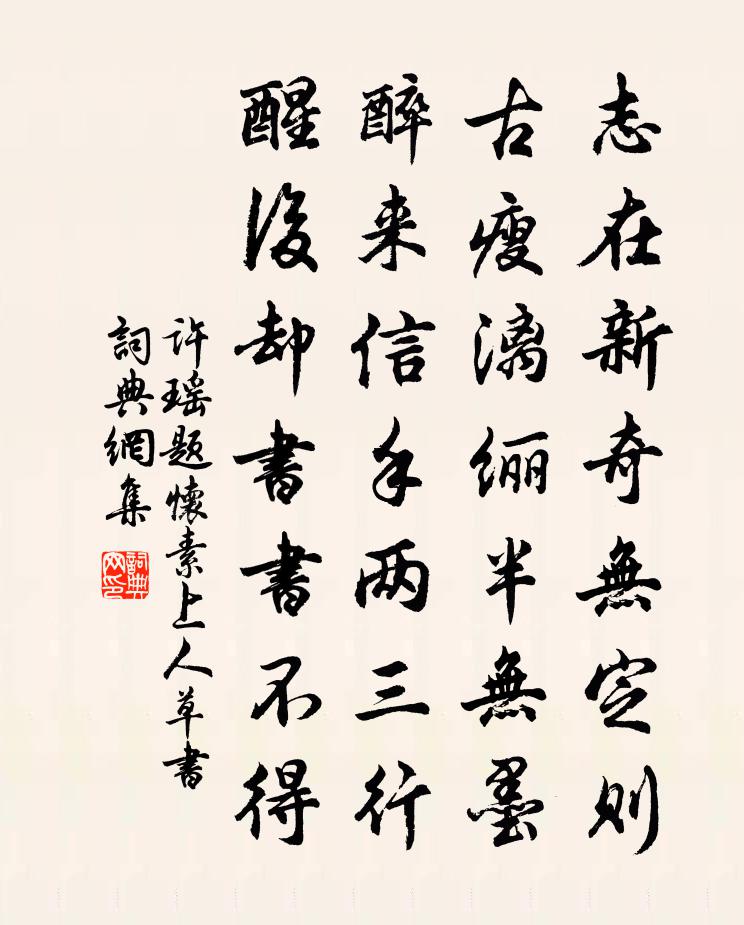 志在新奇無定则
古瘦漓纚半無墨
醉来信手两三行
醒後却書書不得
许瑶题懷素上人草書
詞典網集
詞典网印